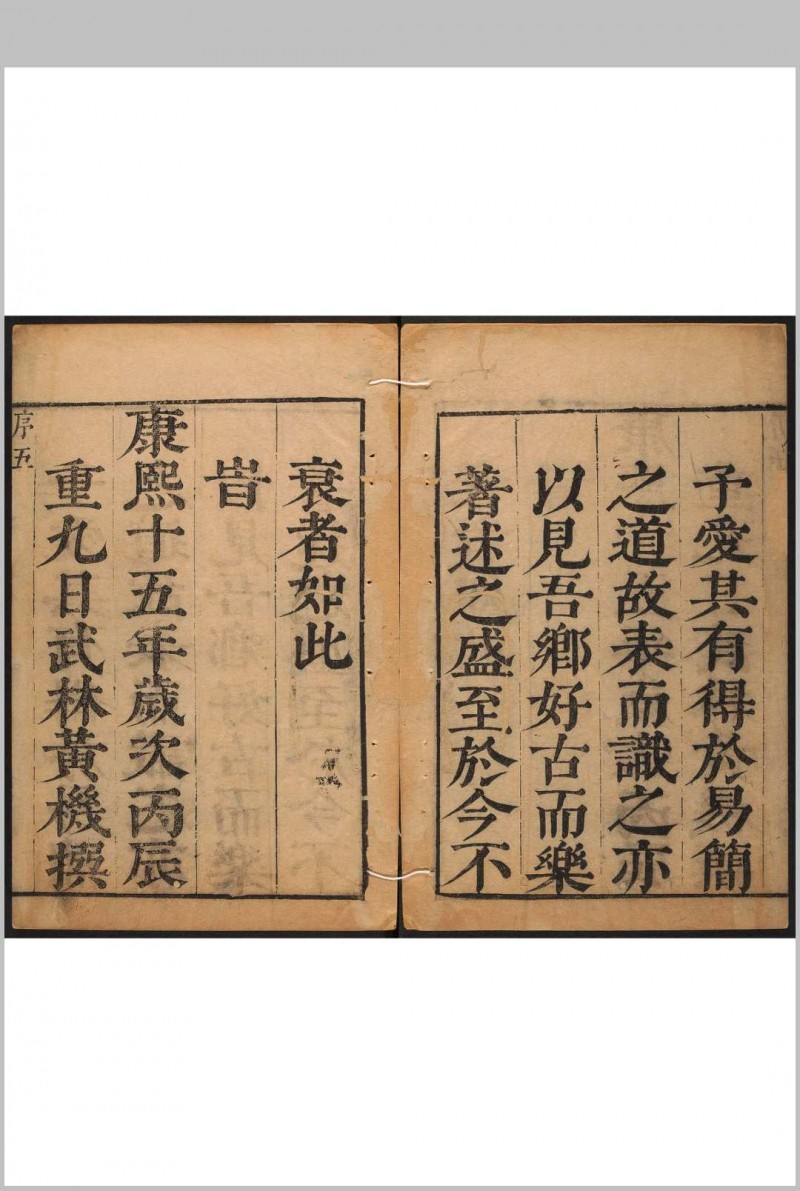 子愛其有得於易簡
之道故表而識之亦
以見吾鄉好古而樂
著述之盛至於今不
衰者如此
旹
康熙十五年歲次丙辰
重九日武林黃機撰
序五